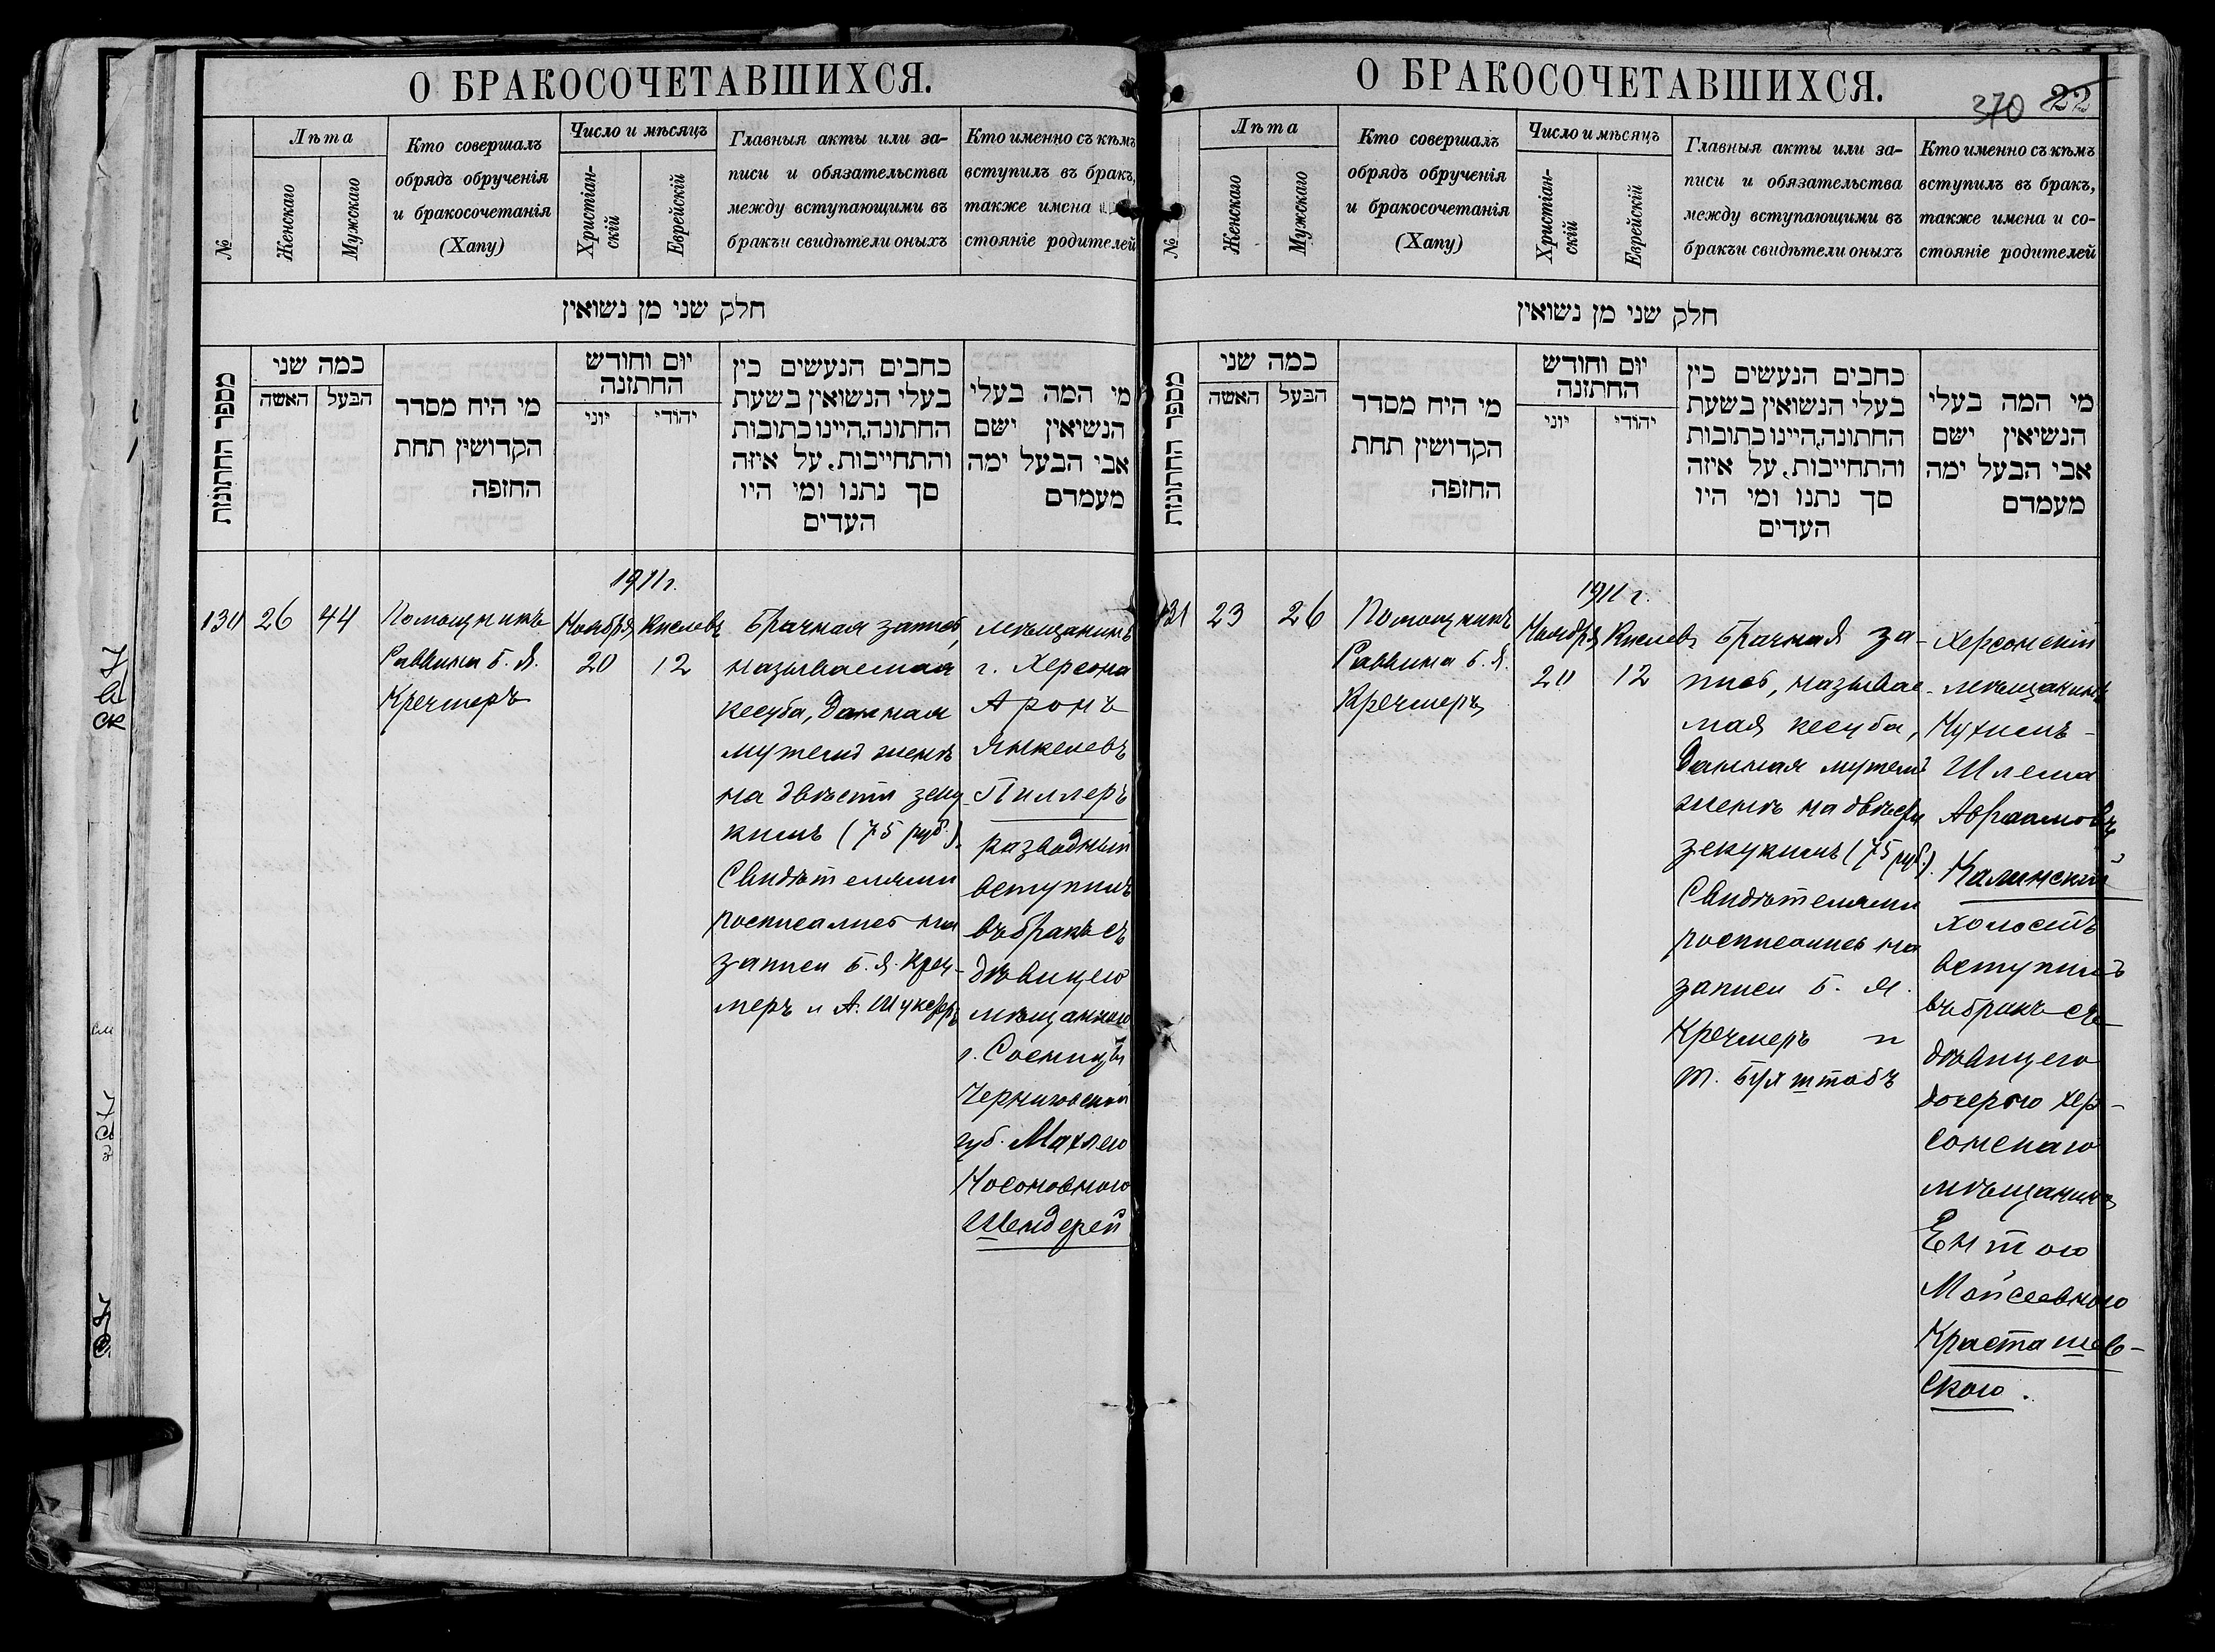 О БРАКОСОЧЕТАВШИХСЯ.
№
Лѣта
Женскаго
Мужскаго
Кто совершалъ
обрядъ обрученія
и бракосочетанія
(Хапу)
Число и мѣсяцъ
Христіан-
скій
Еврейскій
Главныя акты или за-
писи и обязательства
между вступающими въ
бракъи свидѣтели оныхъ
Кто именно съ кѣмъ
вступилъ въ бракъ,
также имена
стояніе родителей
חלק שני מן נשואין
מספר החתונות
כמה שני
האשה
הבעל
מי היח מסדר
הקדושין תחת
החזפה
יום וחודש
החתזנה
יוני
יהודי
כחבים הנעשים כין
בעלי הנשואין בשעת
החתונה,היינו כתובות
והתחייבות, על איזה
סך נתנו ומי היו
העדים
מי המה בעלי
הנשיאין ישם
אבי הבעל ימה
מעמדם
1911 г.
130
26
44
Помощникъ
Раввина Б. Я.
Кречмеръ
Ноября
20
Кислевъ
12
Брачная запись,
называемая
кесуба, данная
мужемъ женѣ
на двѣсти зеку-
кимъ (75 руб.).
Свидѣтелями
росписались на
записи Б. Я. Креч-
меръ и А. Шукеръ
мѣщанинъ
г. Херсона
Аронъ
Янкелевъ
Пиллеръ
разводный
вступилъ
въ бракъ съ
дѣвицею
мѣщанкою
г. Сосницы
Черниговской
губ. Махлею
Носоновною
Шендерей
О БРАКОСОЧЕТАВШИХСЯ.
370 22
№
Лѣта
Женскаго
Мужскаго
Кто совершалъ
обрядъ обрученія
и бракосочетанія
(Хапу)
Число и мѣсяцъ
Христіан-
скій
Еврейскій
Главныя акты или за-
писи и обязательства
между вступающими въ
бракъи свидѣтели оныхъ
Кто именно съ кѣмъ
вступилъ въ бракъ,
также имена и со-
стояніе родителей
חלק שני מן נשואין
מספר החתונות
כמה שני
האשה
הבעל
מי היח מסדר
הקדושין תחת
החזפה
יום וחודש
החתזנה
יוני
יהודי
כחבים הנעשים כין
בעלי הנשואין בשעת
החתונה,היינו כתובות
והתחייבות, על איזה
סך נתנו ומי היו
העדים
מי המה בעלי
הנשיאין ישם
אבי הבעל ימה
מעמדם
1911 г.
131
23
26
Помощникъ
Раввина Б. Я.
Кречмеръ
Ноября
20
Кислевъ
12
Брачная за-
пись, называе-
мая кесуба,
данная мужемъ
женѣ на двѣсти
зекукимъ (75 руб.).
Свидѣтелями
росписались на
записи Б. Я.
Кречмеръ и
Т. Бухштабъ
Херсонскій
мѣщанинъ
Нухимъ-
Шлема
Авраамовъ
Калинскій
холостъ
вступилъ
въ бракъ съ
дѣвицею
дочерью хер-
сонскаго
мѣщанина
Ентою
Мойсеевною
Красташев-
скою.